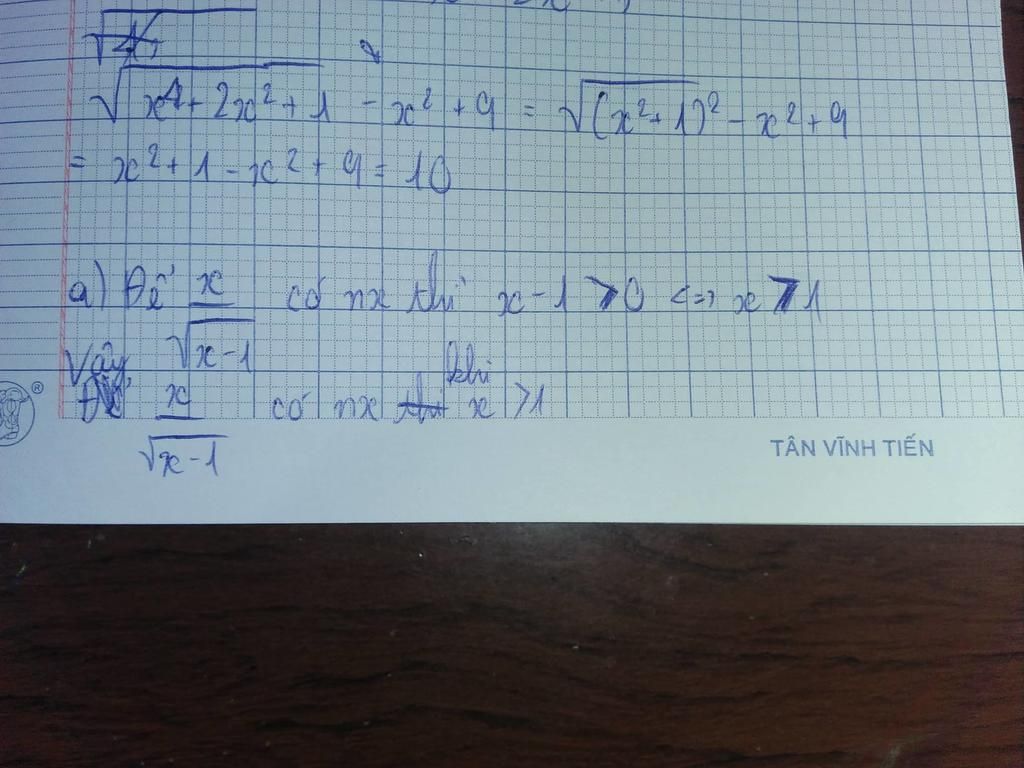 √(x⁴ + 2x² + 1) - x² + 9 = √(x² + 1)² - x² + 9
= x² + 1 - x² + 9 = 10
a) Để x/√(x-1) có nx thì x - 1 > 0 <=> x > 1
Vậy x/√(x-1) có nx khi x > 1
®
TÂN VĨNH TIẾN